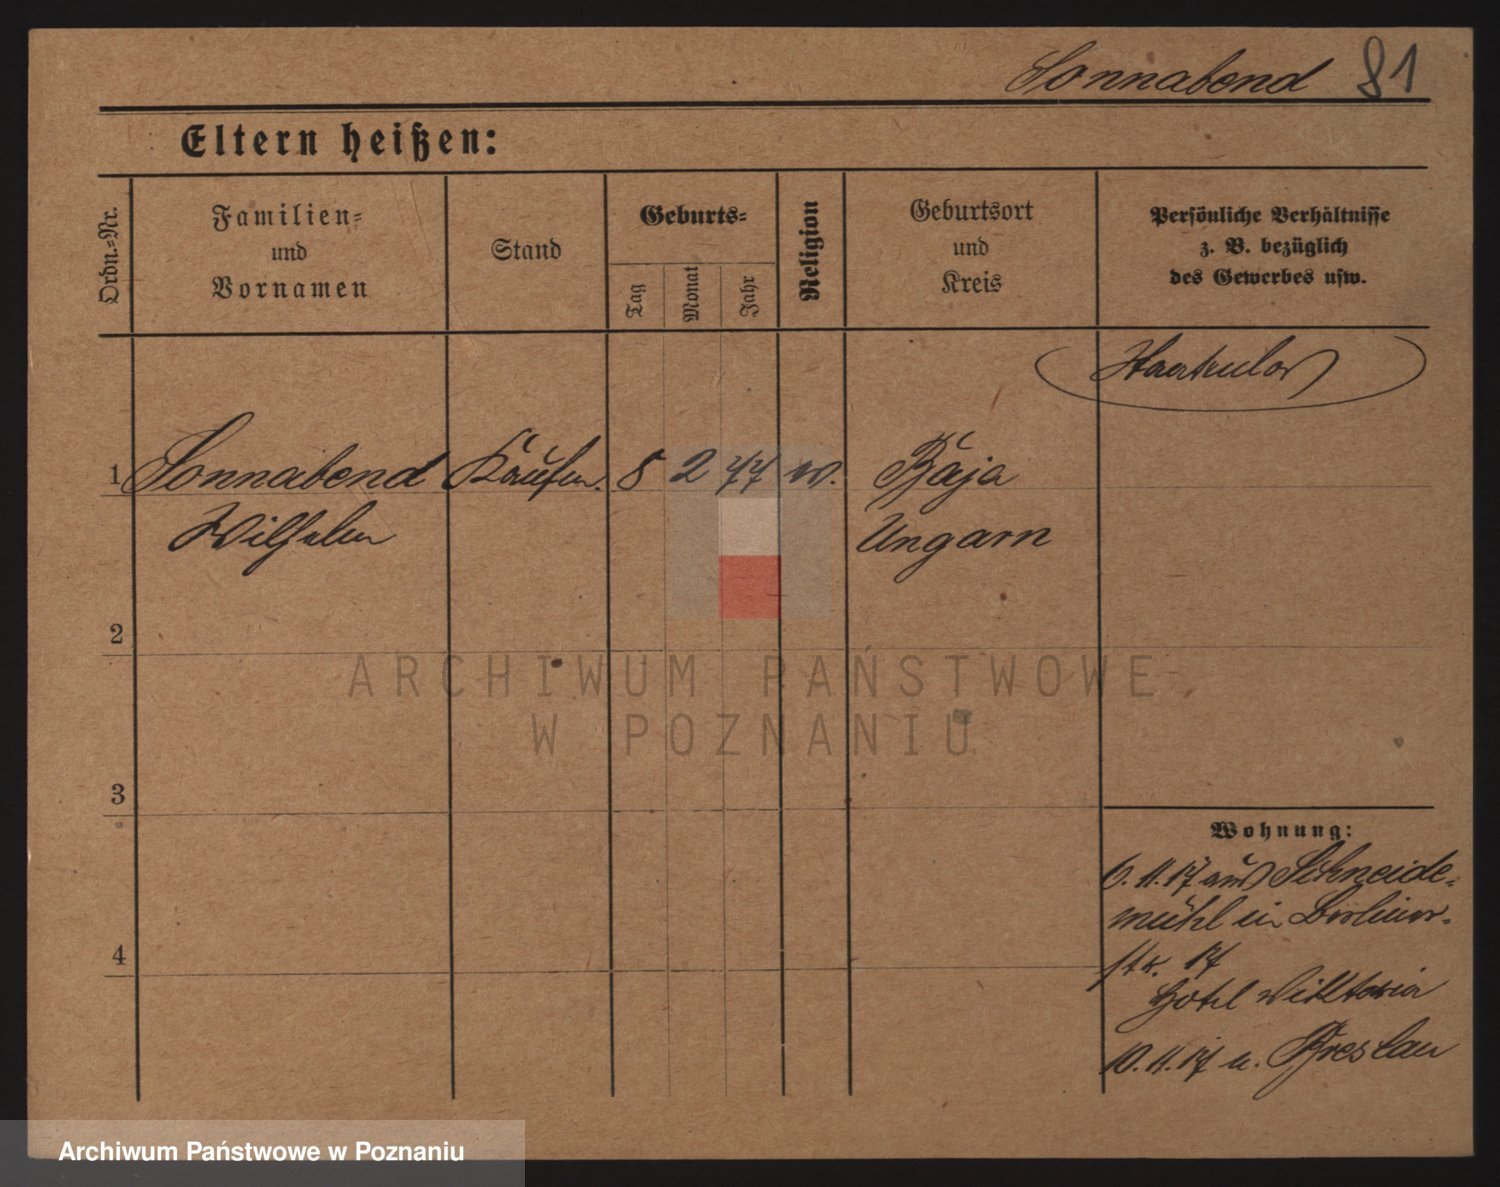 Sonnabend 81
Eltern heißen:
Ordn.-Nr.
Familien-
und
Vornamen
Stand
Geburts-
Tag
Monat
Jahr
Religion
Geburtsort
und
Kreis
Persönliche Verhältnisse
z. B. bezüglich
des Gewerbes usw.
1 Sonnabend Kaufm. 8 2 77 Baja
Wilhelm Ungarn
2
3
4
Wohnung:
6.11.17 aus Schneide-
mühl in Berliner-
str. 17
Hotel Viktoria
10.11.17 n. Breslau
ARCHIWUM PAŃSTWOWE
W POZNANIU
Archiwum Państwowe w Poznaniu